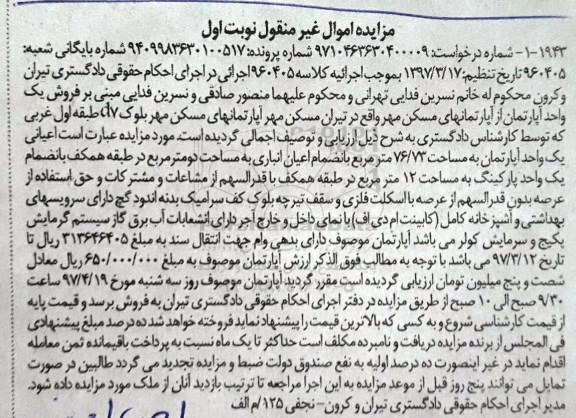 مزایده اموال غیر منقول نوبت اول
۱-۱۹۴۳- شماره درخواست: ۹۷۱۰۴۶۳۶۳۰۴۰۰۰۰۹ شماره پرونده: ۹۴۰۹۹۸۳۶۳۰۱۰۰۵۱۷ شماره بایگانی شعبه:
۹۶۰۴۰۵ تاریخ تنظیم: ۱۳۹۷/۳/۱۷ بموجب اجرائیه کلاسه ۹۶۰۴۰۵ اجرائی در اجرای احکام حقوقی دادگستری تیران
و کرون محکوم له خانم نسرین فدایی تهرانی و محکوم علیهما منصور صادقی و نسرین فدایی مبنی بر فروش یک
واحد آپارتمان از آپارتمانهای مسکن مهر واقع در تیران مسکن مهر آپارتمانهای مسکن مهر بلوک d۷ طبقه اول غربی
که توسط کارشناس دادگستری به شرح ذیل ارزیابی و توصیف اجمالی گردیده است. مورد مزایده عبارت است اعیانی
یک واحد آپارتمان به مساحت ۷۶/۷۳ متر مربع بانضمام اعیان انباری به مساحت دو متر مربع در طبقه همکف بانضمام
یک واحد پارکینگ به مساحت ۱۲ متر مربع در طبقه همکف با قدرالسهم از مشاعات و مشترکات و حق استفاده از
عرصه بدون قدرالسهم از عرصه با اسکلت فلزی و سقف تیرچه بلوک کف سرامیک بدنه اندود گچ دارای سرویسهای
بهداشتی و آشپزخانه کامل (کابینت ام دی اف) با نمای داخل و خارج آجر دارای انشعابات آب برق گاز سیستم گرمایش
پکیج و سرمایش کولر می باشد آپارتمان موصوف دارای بدهی وام جهت انتقال سند به مبلغ ۳۱۳۶۴۶۴۰۵ ریال تا
تاریخ ۹۷/۳/۱۲ می باشد با توجه به مطالب فوق الذکر ارزش آپارتمان موصوف به مبلغ ۶۵۰/۰۰۰/۰۰۰ ریال معادل
شصت و پنج میلیون تومان ارزیابی گردیده است مقرر گردید آپارتمان موصوف روز سه شنبه مورخ ۹۷/۴/۱۹ ساعت
۹/۳۰ صبح الی ۱۰ صبح از طریق مزایده در دفتر اجرای احکام حقوقی دادگستری تیران به فروش برسد و قیمت پایه
از قیمت کارشناسی شروع و به کسی که بالاترین قیمت را پیشنهاد نماید فروخته خواهد شد ده درصد مبلغ پیشنهادی
فی المجلس از برنده مزایده دریافت و نامبرده مکلف است حداکثر تا یک ماه نسبت به پرداخت باقیمانده ثمن معامله
اقدام نماید در غیر اینصورت ده درصد اولیه به نفع صندوق دولت ضبط و مزایده تجدید می گردد طالبین در صورت
تمایل می توانند پنج روز قبل از موعد مزایده به این اجرا مراجعه تا ترتیب بازدید آنان از ملک مورد مزایده داده شود.
مدیر اجرای احکام حقوقی دادگستری تیران و کرون- نجفی ۱۲۵/م الف